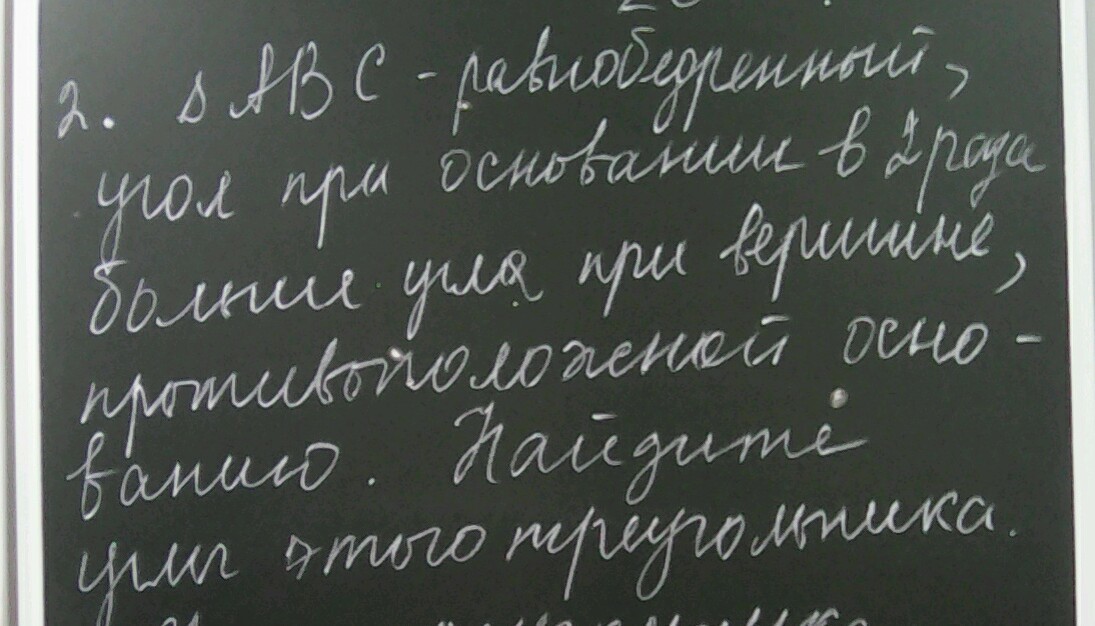 2. △ ABC - равнобедренный,
угол при основании в 2 раза
больше угла при вершине,
противоположной осно-
ванию. Найдите
углы этого треугольника.